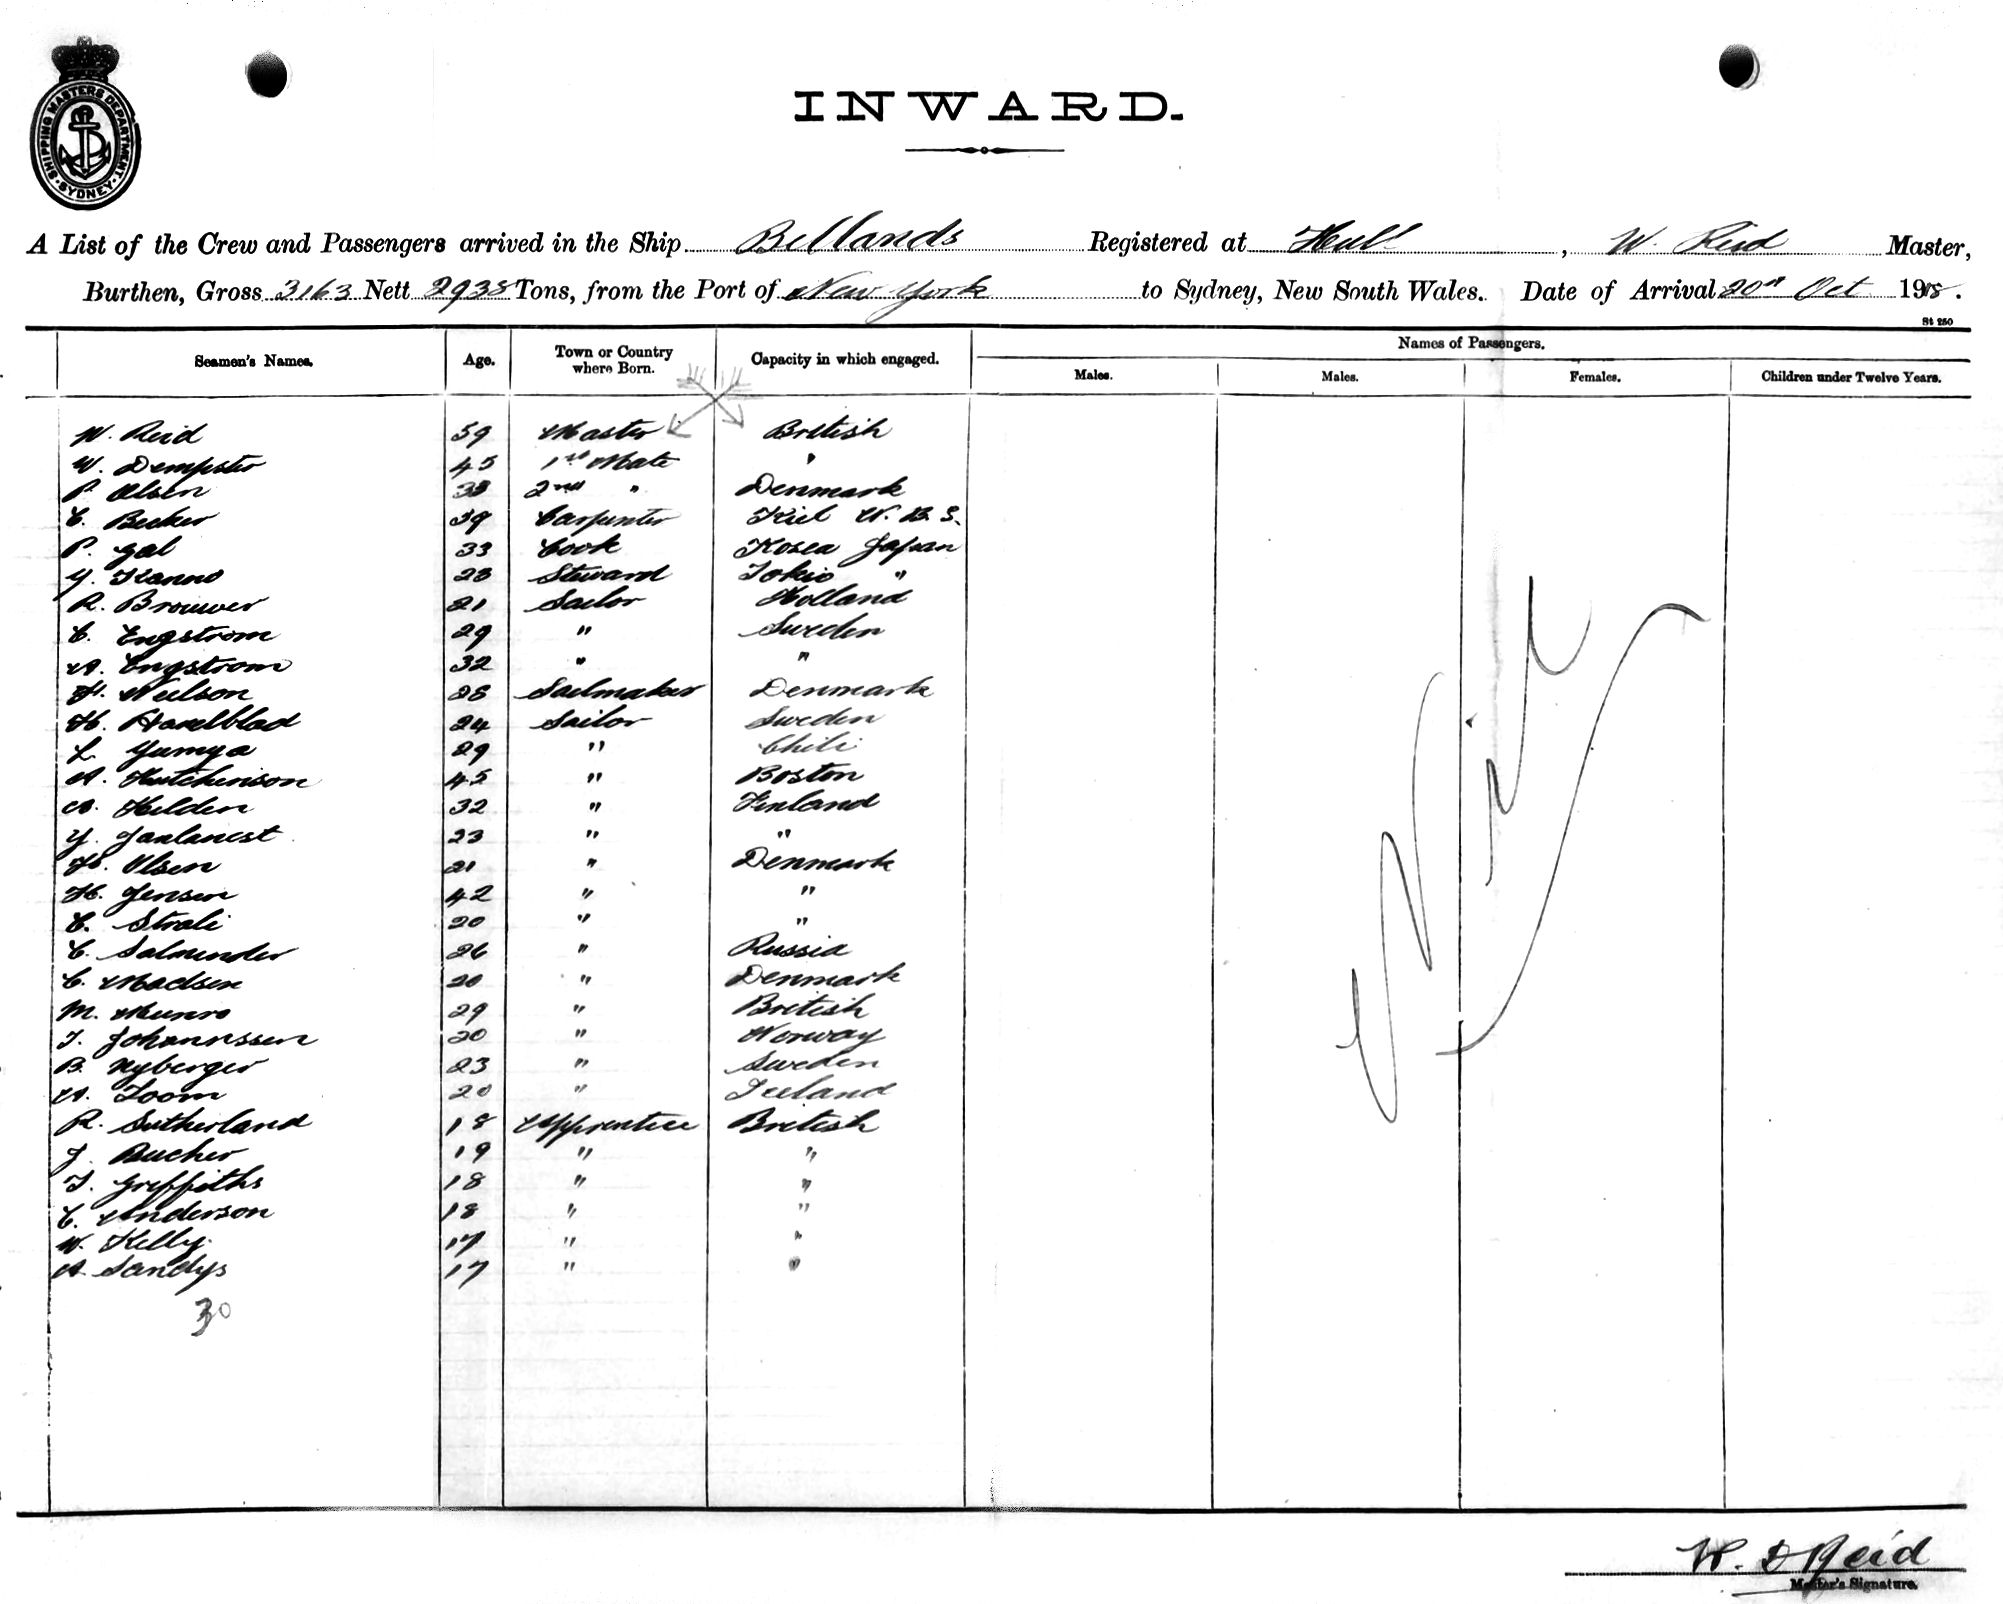 SHIPPING MASTERS DEPARTMENT
SYDNEY
INWARD.
A List of the Crew and Passengers arrived in the Ship Bellands Registered at Hull, W. Reid Master,
Burthen, Gross 3163 Nett 2938 Tons, from the Port of New York to Sydney, New South Wales. Date of Arrival 20th Oct 1918.
St 250
Seamen's Names. Age. Town or Country where Born. Capacity in which engaged. Names of Passengers.
Males. Males. Females. Children under Twelve Years.
W. Reid 59 Master British
W. Dempster 45 1st Mate "
P. Olsen 33 2nd " Denmark
C. Becker 39 Carpenter Kiel W. B. S.
P. Gal 33 Cook Kosea Japan
Y. Kanno 28 Steward Tokio "
R. Brouwer 21 Sailor Holland
C. Engstrom 29 " Sweden
A. Engstrom 32 " "
H. Neilson 28 Sailmaker Denmark
H. Haxelblad 24 Sailor Sweden
L. Yumya 29 " Chili
A. Hutchinson 45 " Boston
A. Hilden 32 " Finland
Y. 23 " "
H. Olsen 21 " Denmark
H. Jensen 42 " "
C. Strali 20 " "
C. Salminder 26 " Russia
C. Madsen 20 " Denmark
M. Munro 29 " British
T. Johannssen 20 " Norway
B. Nyberger 23 " Sweden
A. Toom 20 " Iceland
R. Sutherland 18 Apprentice British
J. Bucher 19 " "
T. Griffiths 18 " "
C. Anderson 18 " "
W. Kelly. 17 " "
A. Sandys 17 " "
30
Nil
W. D Reid
Master's Signature.